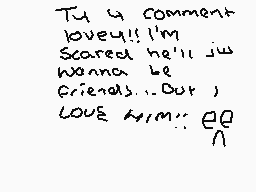 Ty 4 comment
lovey!! I'm
scared he'll jus
wanna be
friends... But I
LOVE HIM!!